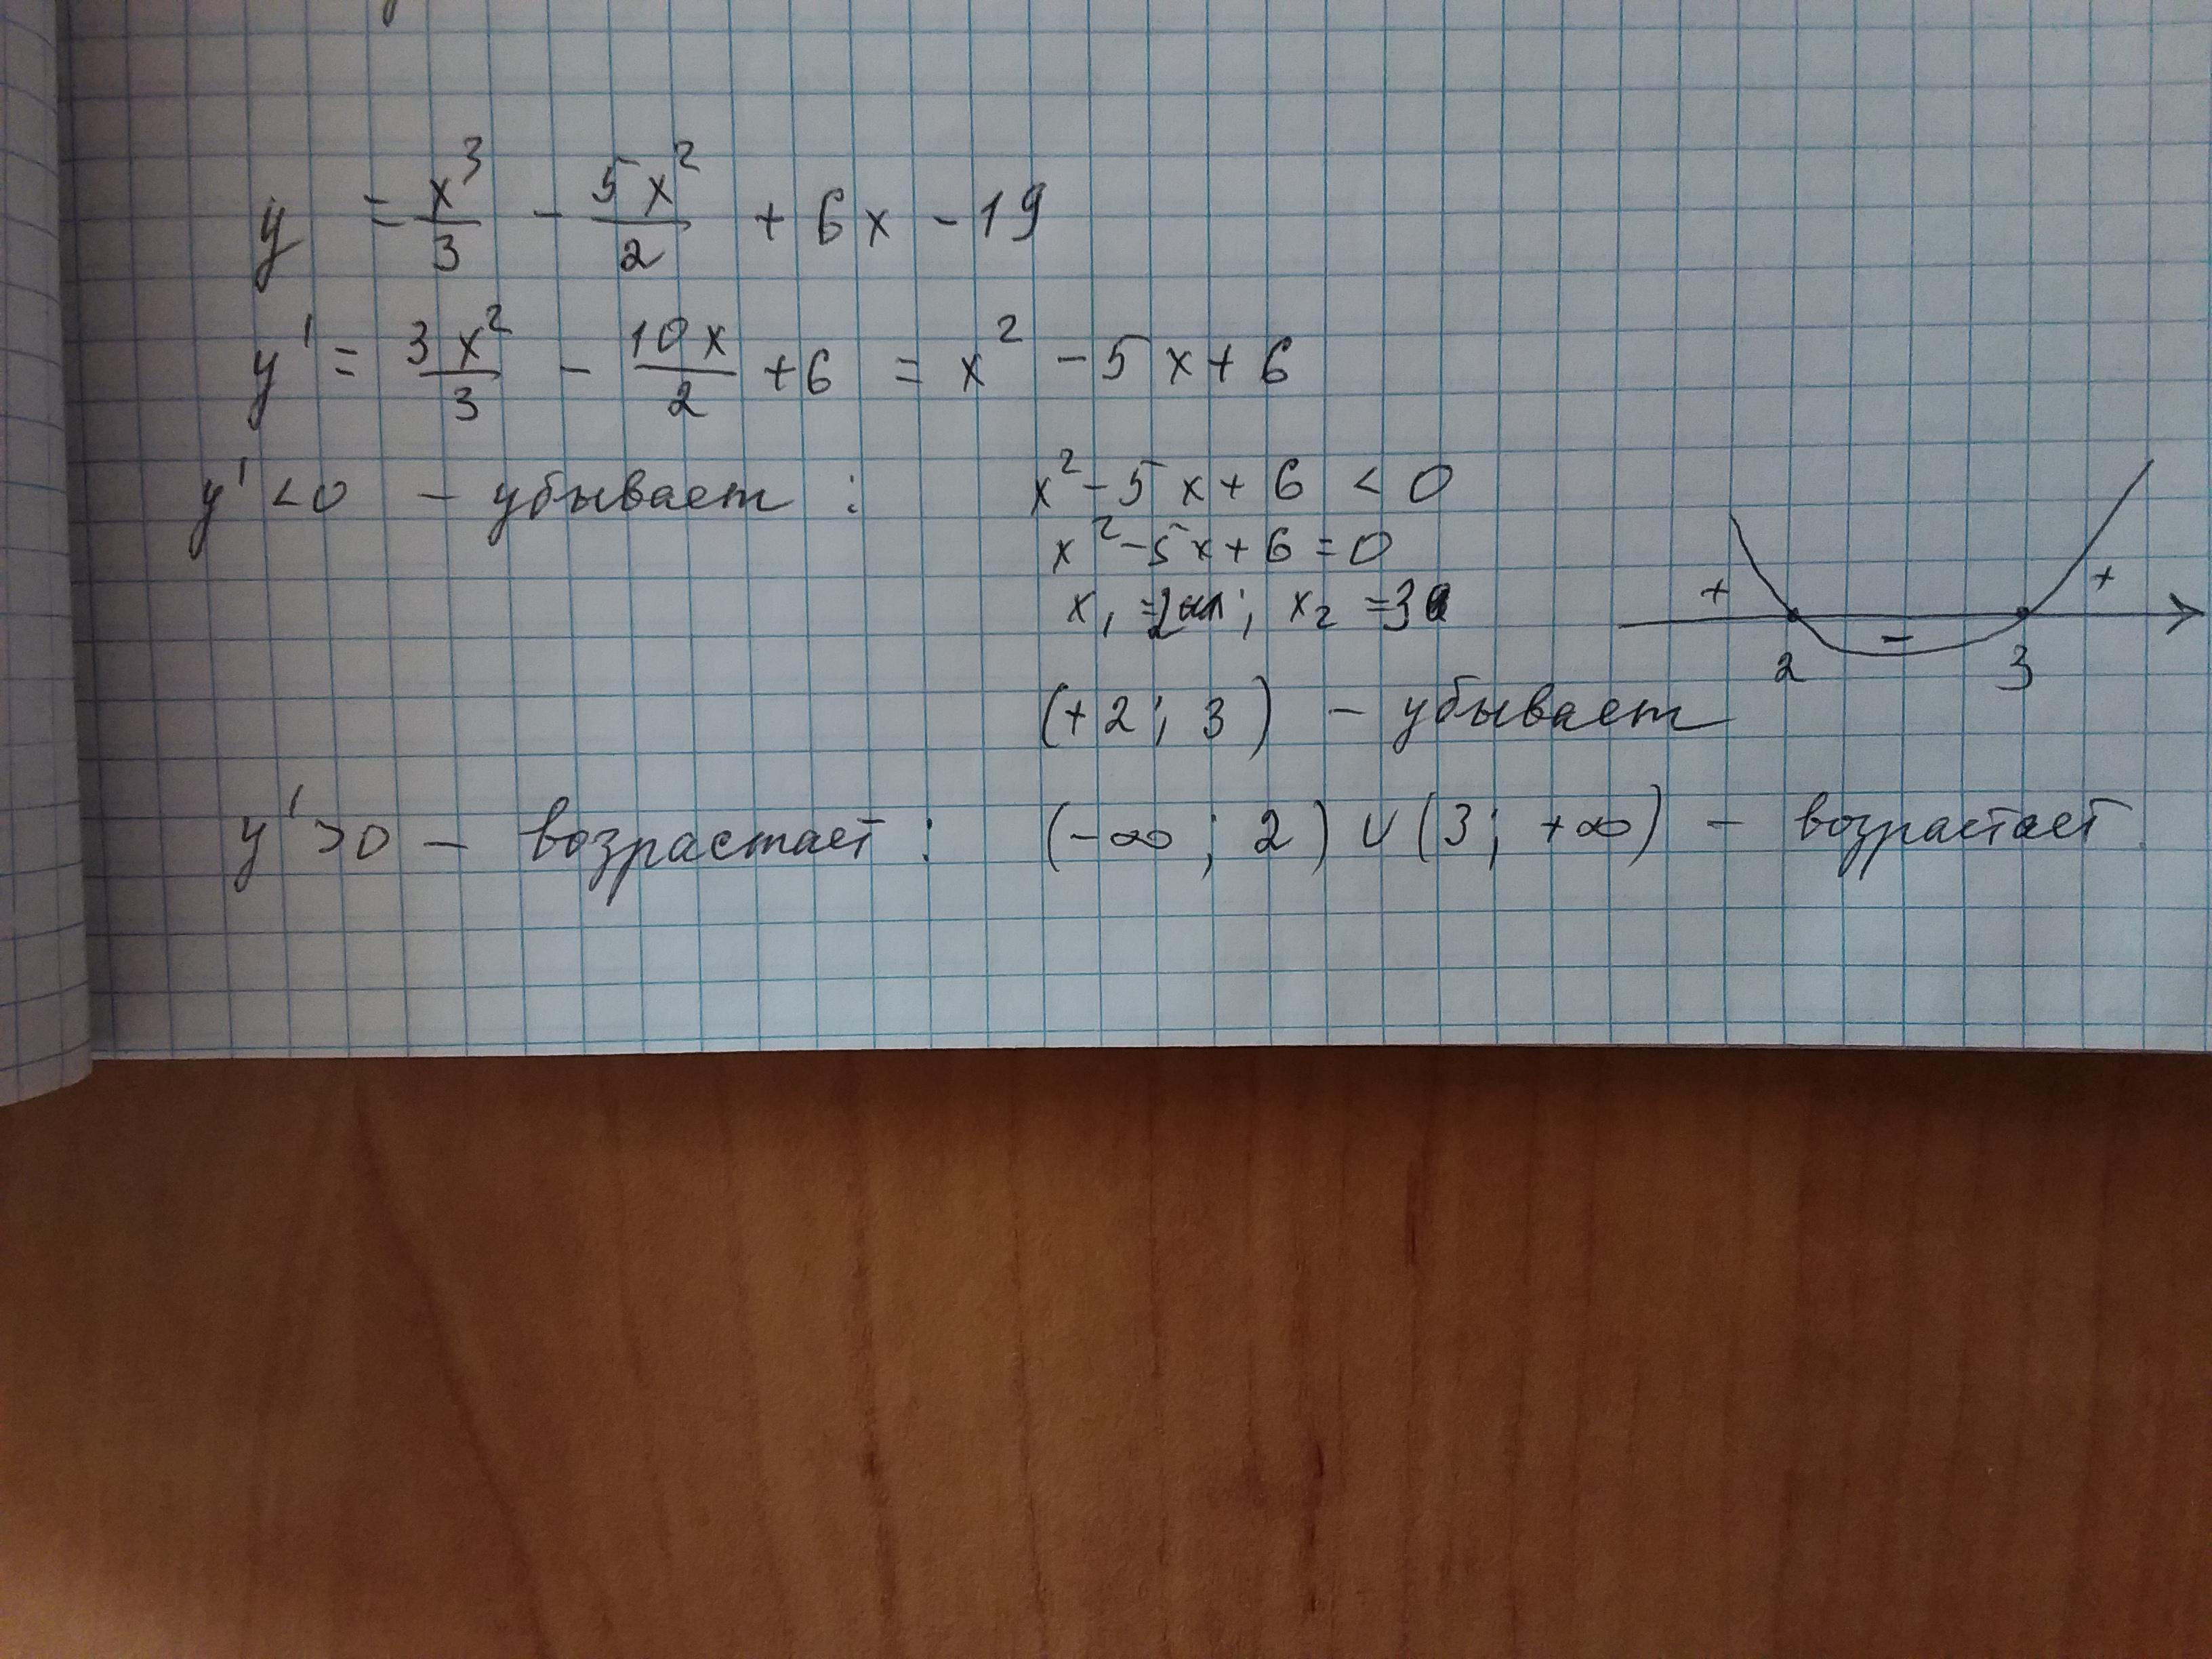 y = x³/3 - 5x²/2 + 6x - 19
y' = 3x²/3 - 10x/2 + 6 = x² - 5x + 6
y' < 0 - убывает : x² - 5x + 6 < 0
x² - 5x + 6 = 0
x₁ = 2 ; x₂ = 3
+ - +
2 3
(+2 ; 3) - убывает
y' > 0 - возрастает : (-∞ ; 2) ∪ (3 ; +∞) - возрастает.